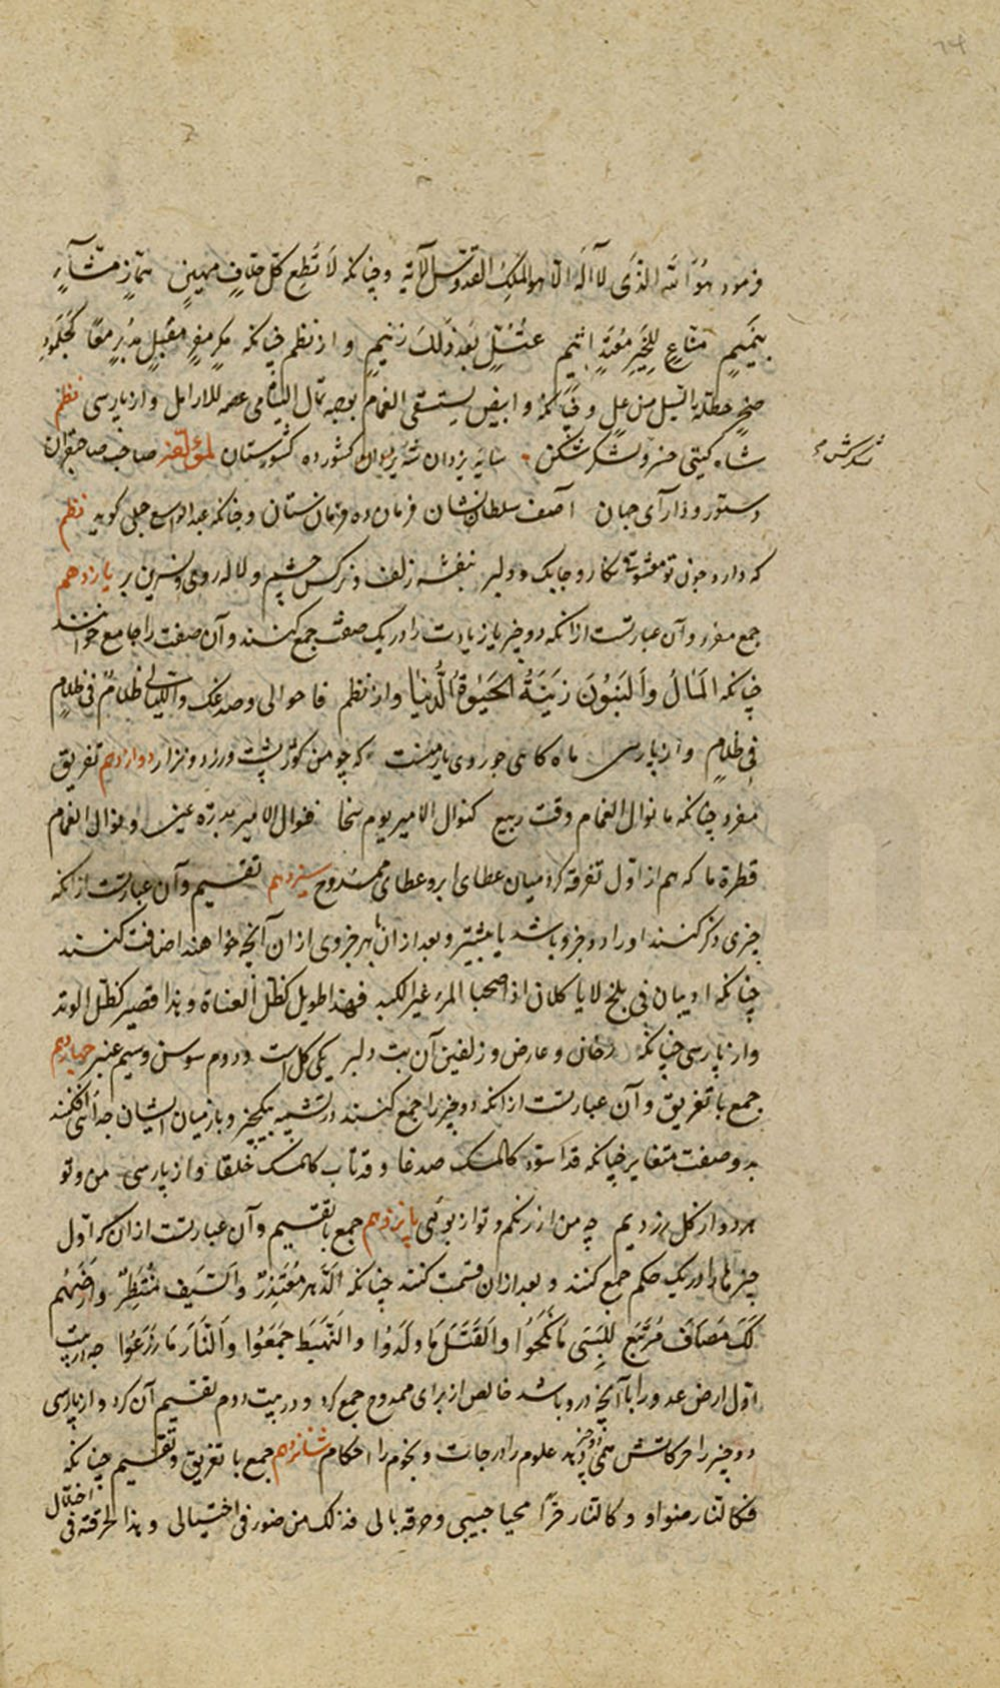 فرمود هو الله الذی لا آله الا هو الملک القدوس الآیه و چنانکه لَا تُطِع کلّ حلّافٍ مهینٍ همّازٍ مشّآءٍ
بِنَمیمٍ منّاعٍ لِلخَیرِ مُعتَدٍ اثیمٍ عُتُلٍّ بَعدَ ذٰلِکَ زنیمٍ و از نظم چنانکه مِکرٍ مفرٍ مقبلٍ مدبرٍ معًا کجلمود
صخرٍ حطّه السیل من علٍ و چنانکه و ابیض یستسقی الغمام بوجهه ثمال الیتامی عصمه للارامل و از پارسی نظم
شاه کیتی خسرو لشکر شکن سایه یزدان شه کشور ده کشورستان لمؤلفه صاحب صاحبقران
دستور و دارآی جهان آصف سلطان نشان فرمان ده فرمان ستان و چنانکه عبدالواسع جبلی کوید نظم
که دارد چون تو معشوقی نکار و چابک و دلبر بنفشه زلف و نرکس چشم و لاله روی و نسرین بر یازدهم
جمع مفرد و آن عبارتست ازانکه دو چیز یا زیادت را در یک صفت جمع کنند و آن صفت را جامع خوانند
چنانکه اَلمَالُ وَاَلبَنُونَ زِینَةُ الحَیٰوةِ الدُّنیَا و از نظم فاحوالی و صدغک واللیالی ظلامٌ فی ظلامٍ
فِی ظلامٍ و از پارسی ماه کاهی چو روی یار منست که چو من کوژ پشت و زرد و نزار دوازدهم تفریق
مفرد چنانکه ما نوال الغمام وقت ربیع کنوال الامیر یوم سخا فنوال الامیر بدرة عین و نوال الغمام
قطرة ما که هم از اوّل تفرقه کرد میان عطای ابر و عطای ممدوح سیزدهم تقسیم و آن عبارتست ازانکه
چیزی ذکر کنند او را دو جزو باشد یا بیشتر و بعد ازان بهر جزوی ازان آنچه خواهند اضافت کنند
چنانکه ادیبان فی بلخ لا یاکلان اذا صحبا المرء غیر الکبد فهذا طویل کظل القناة و هذا قصیر کظل الوتد
و از پارسی چنانکه رخان و عارض و زلفین آن بت دلبر یکی کل است و دوم سوسن و سیم عنبر چهاردهم
جمع با تفریق و آن عبارتست ازانکه دو چیز را جمع کنند در تشبیه بیکچیز و باز میان ایشان جدائی افکنند
بدو صفت متغایر چنانکه قد اسود کالمسک صدغا و قد تاب کالمسک خلقا و از پارسی من و تو
هر دو از کل زردیم چه من از رنکم و تو از بوئی پانزدهم جمع با تقسیم و آن عبارتست ازان که اول
چیزها را در یک حکم جمع کنند و بعد ازان قسمت کنند چنانکه اَلدَّهرُ مُعتَذِرٌ وَاَلسَّیفُ مُنتَظِرٌ وَاَرضُهُم
لَکَ مُصطَافٌ مُرتَبَعٌ لِلسَّبی مَا نَکَحُوا وَالقَتلِ مَا وَلَدُوا وَالنَّهبِ مَا جَمَعُوا وَالنَّارِ مَا زَرَعُوا چه در بیت
اوّل ارض عدو را با آنچه درو باشد خالص از برای ممدوح جمع کرد و در بیت دوم تقسیم آن کرد و از پارسی
دو چیز را حرکاتش همی دو چیز دهد علوم را درجات و نجوم را احکام شانزدهم جمع با تفریق و تقسیم چنانکه
فکالنار ضوا و کالنار حرّا محیا حبیبی و حرقه بالی فذلک من ضوئه فی اختیالی و هذا لحرقته فی اختلال